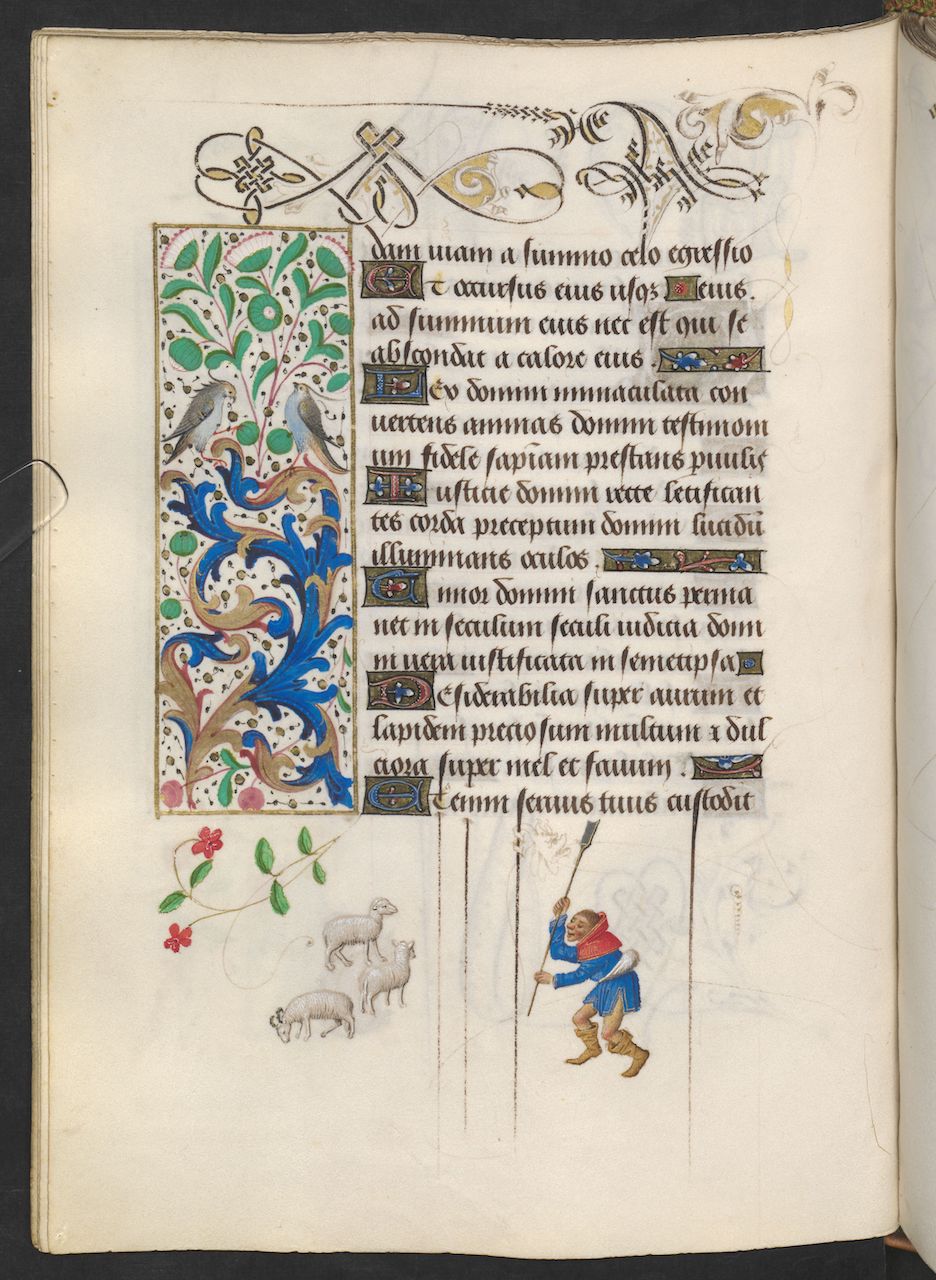 dam uiam a summo celo egressio
Et occursus eius usqꝫ eius.
ad summum eius nec est qui se
abscondat a calore eius.
Lex domini inmaculata con
uertens animas domini testimoni
um fidele sapīam prestans ꝑuulis
Iusticie domini recte letifican
tes corda preceptum domini lucidū
illuminans oculos.
Timor domini sanctus perma
net in seculum seculi iudicia domi
ni uera iustificata in semetipsa
Desiderabilia super aurum et
lapidem preciosum multum ⁊ dul
ciora super mel et fauum.
Etenim seruus tuus custodit